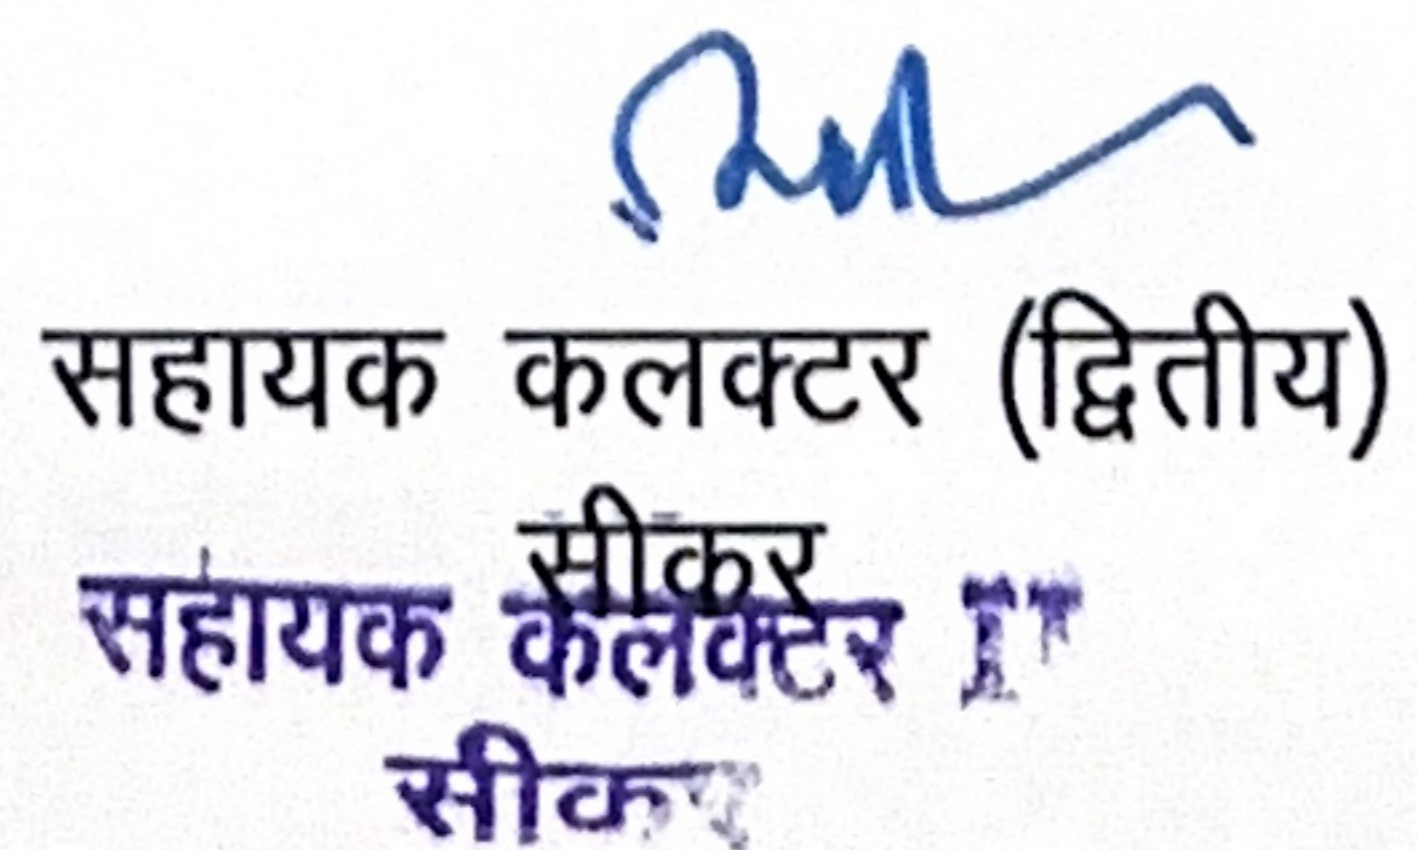 सहायक कलक्टर (द्वितीय)
सीकर
सहायक कलक्टर
सीकर